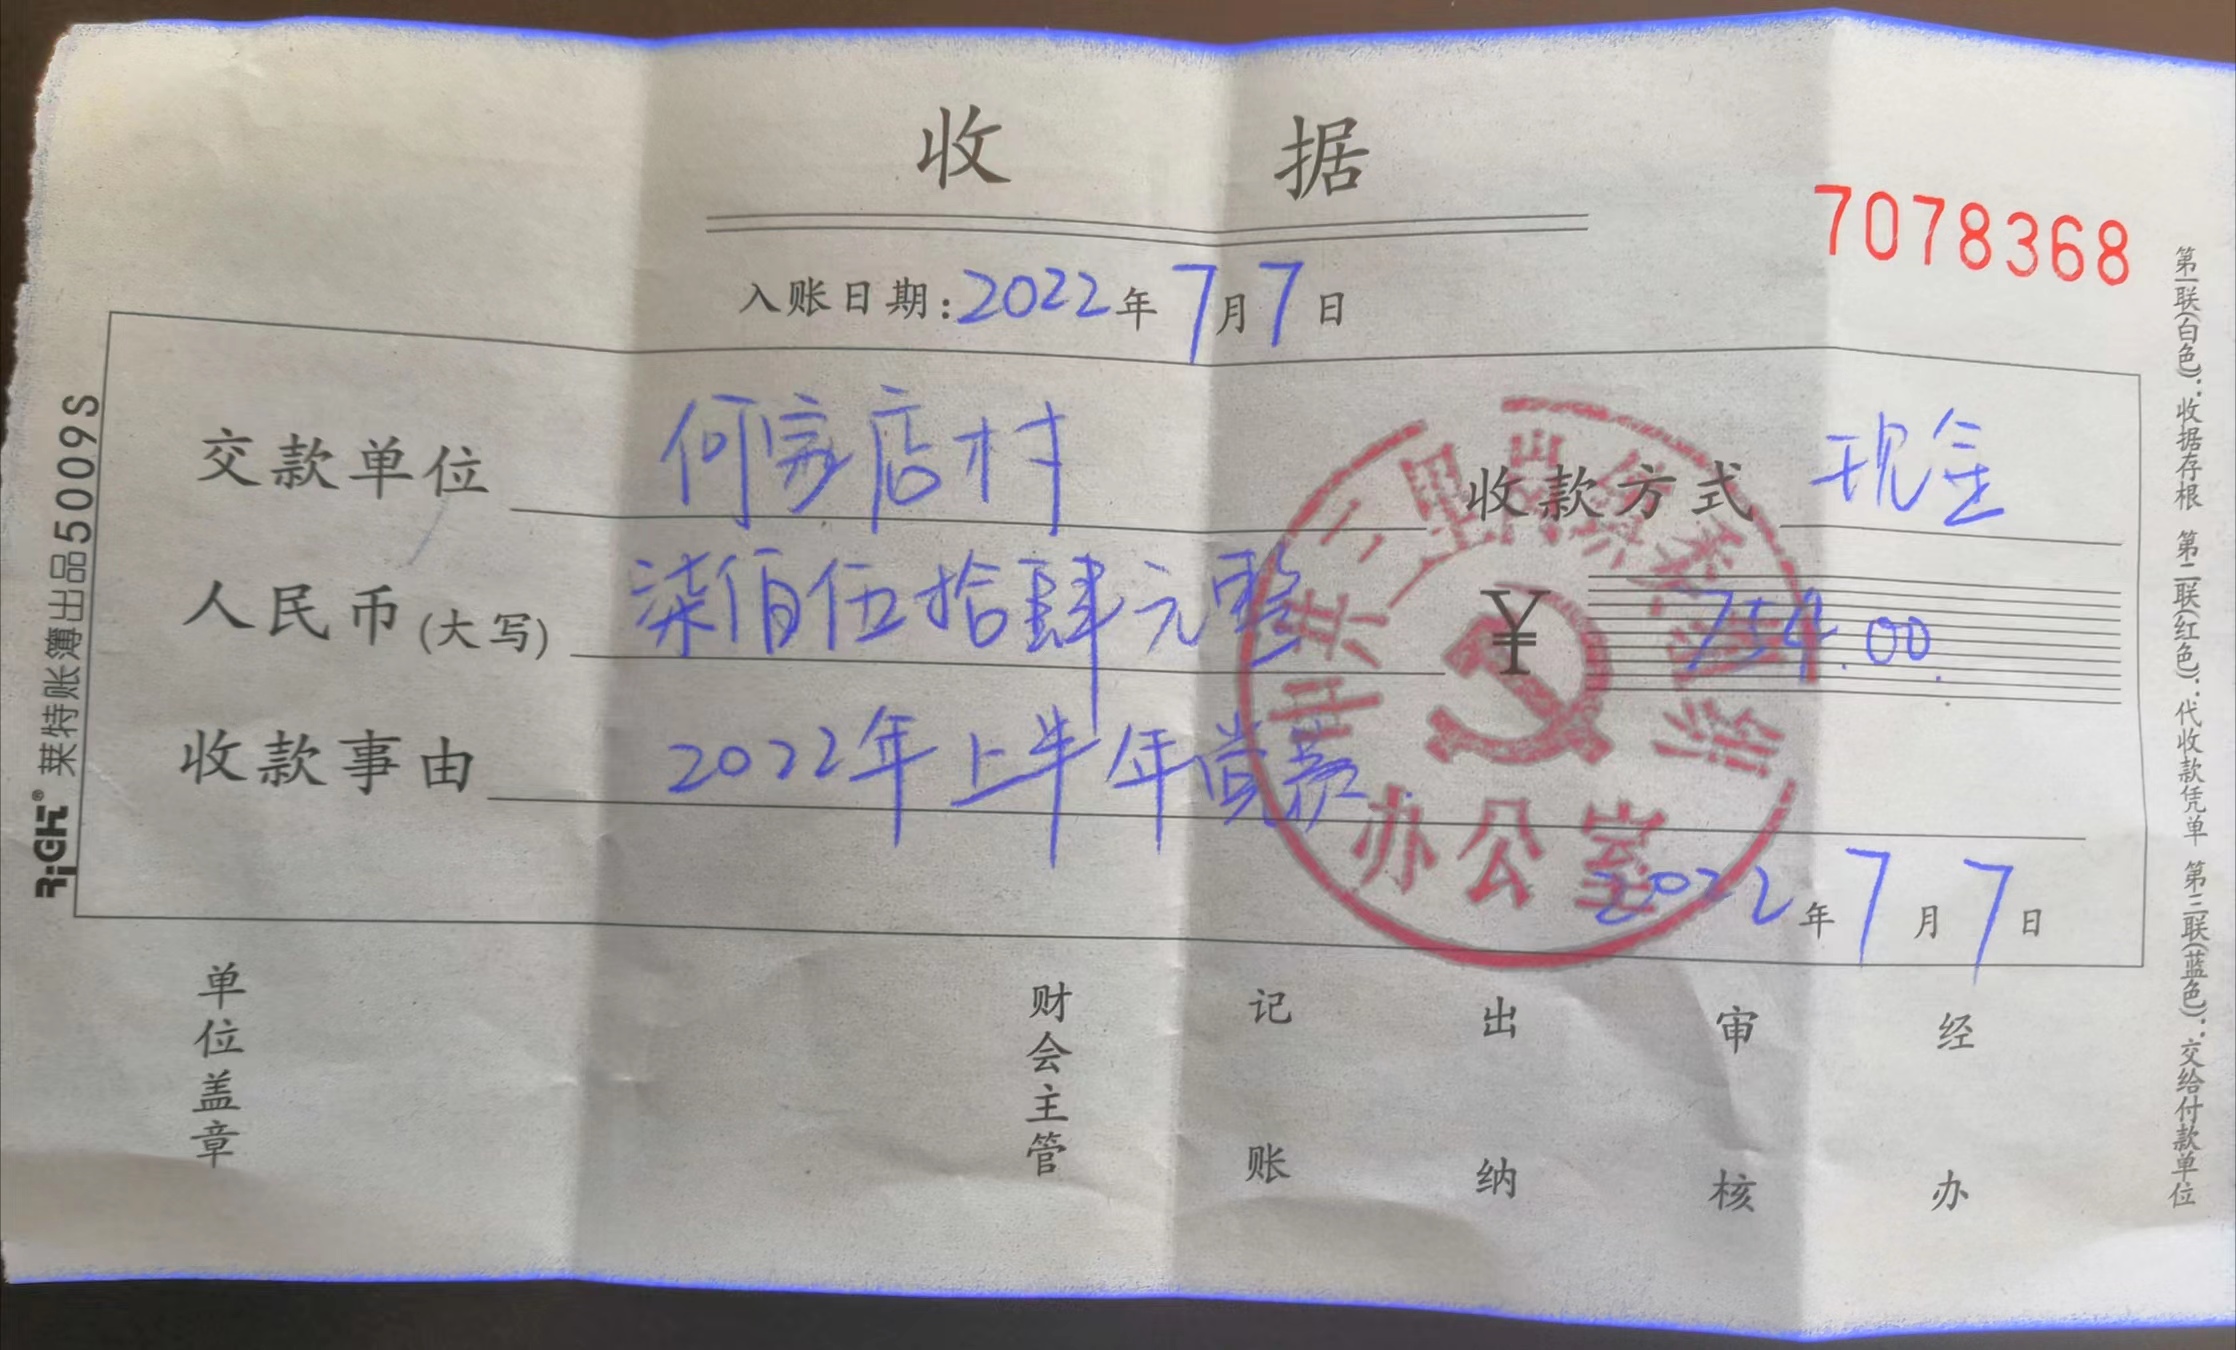 收 据
7078368
入账日期:2022年7月7日
交款单位 何家店村 收款方式 现金
人民币(大写) 柒佰伍拾肆元整 ¥ 754.00
收款事由 2022年上半年党费
2022年7月7日
单位盖章 财会主管 记账 出纳 审核 经办
RiGHT® 莱特账簿出品5009S
第一联(白色):收据存根 第二联(红色):代收款凭单 第三联(蓝色):交给付款单位
中共二里岗街
办公室